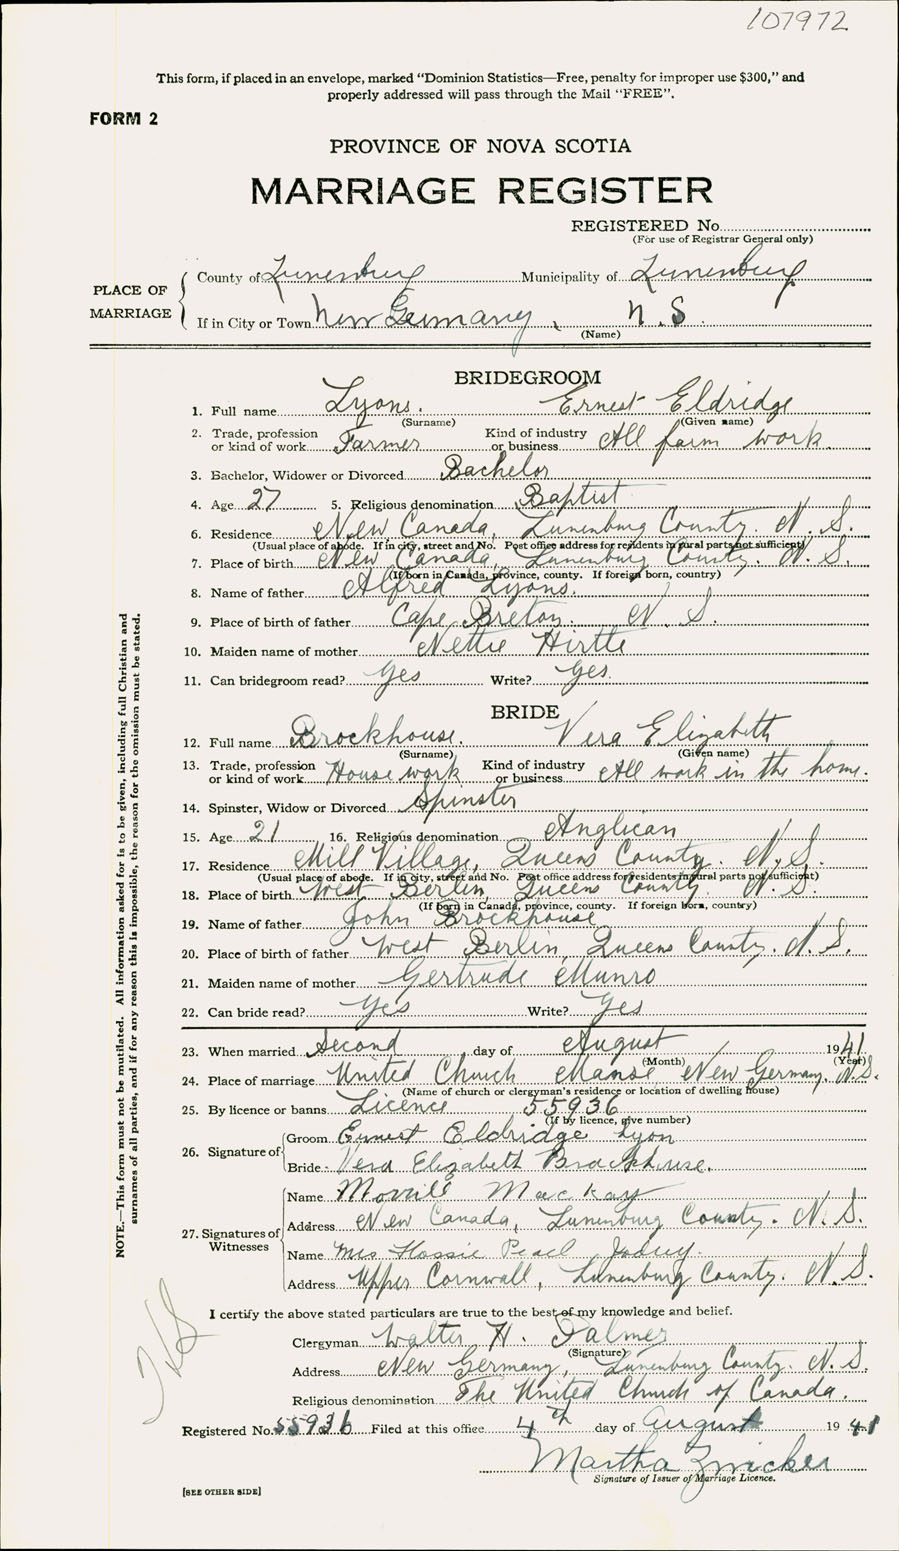 107972
This form, if placed in an envelope, marked "Dominion Statistics—Free, penalty for improper use $300," and
properly addressed will pass through the Mail "FREE".
FORM 2
PROVINCE OF NOVA SCOTIA
MARRIAGE REGISTER
REGISTERED No.
(For use of Registrar General only)
PLACE OF MARRIAGE
County of Lunenburg Municipality of Lunenburg
If in City or Town New Germany, N.S.
(Name)
BRIDEGROOM
1. Full name Lyons. Ernest Eldridge
(Surname) (Given name)
2. Trade, profession or kind of work Farmer Kind of industry or business All farm work
3. Bachelor, Widower or Divorced Bachelor
4. Age 27 5. Religious denomination Baptist
6. Residence New Canada, Lunenburg County. N.S.
(Usual place of abode. If in city, street and No. Post office address for residents in rural parts not sufficient)
7. Place of birth New Canada, Lunenburg County. N.S.
(If born in Canada, province, county. If foreign born, country)
8. Name of father Alfred Lyons.
9. Place of birth of father Cape Breton. N.S.
10. Maiden name of mother Nettie Hirtle
11. Can bridegroom read? Yes Write? Yes.
BRIDE
12. Full name Brockhouse. Vera Elizabeth
(Surname) (Given name)
13. Trade, profession or kind of work House work Kind of industry or business All work in the home.
14. Spinster, Widow or Divorced Spinster
15. Age 21 16. Religious denomination Anglican
17. Residence Mill Village, Queens County. N.S.
(Usual place of abode. If in city, street and No. Post office address for residents in rural parts not sufficient)
18. Place of birth West Berlin, Queens County. N.S.
(If born in Canada, province, county. If foreign born, country)
19. Name of father John Brockhouse
20. Place of birth of father West Berlin, Queens County. N.S.
21. Maiden name of mother Gertrude Munro
22. Can bride read? Yes Write? Yes
23. When married Second day of August 1941
(Month) (Year)
24. Place of marriage United Church Manse New Germany, N.S.
(Name of church or clergyman's residence or location of dwelling house)
25. By licence or banns Licence 55936
(If by licence, give number)
26. Signature of
Groom Ernest Eldridge Lyon
Bride Vera Elizabeth Brockhouse.
27. Signatures of Witnesses
Name Morrill MacKay
Address New Canada, Lunenburg County. N.S.
Name Mrs Pearl
Address Upper Cornwall, Lunenburg County. N.S.
I certify the above stated particulars are true to the best of my knowledge and belief.
Clergyman Walter H. Palmer
(Signature)
Address New Germany, Lunenburg County. N.S.
Religious denomination The United Church of Canada.
Registered No. 55936 Filed at this office 4th day of August 1941
Martha Zwicker
Signature of Issuer of Marriage Licence.
[SEE OTHER SIDE]
NOTE.—This form must not be mutilated. All information asked for is to be given, including full Christian and
surnames of all parties, and if for any reason this is impossible, the reason for the omission must be stated.